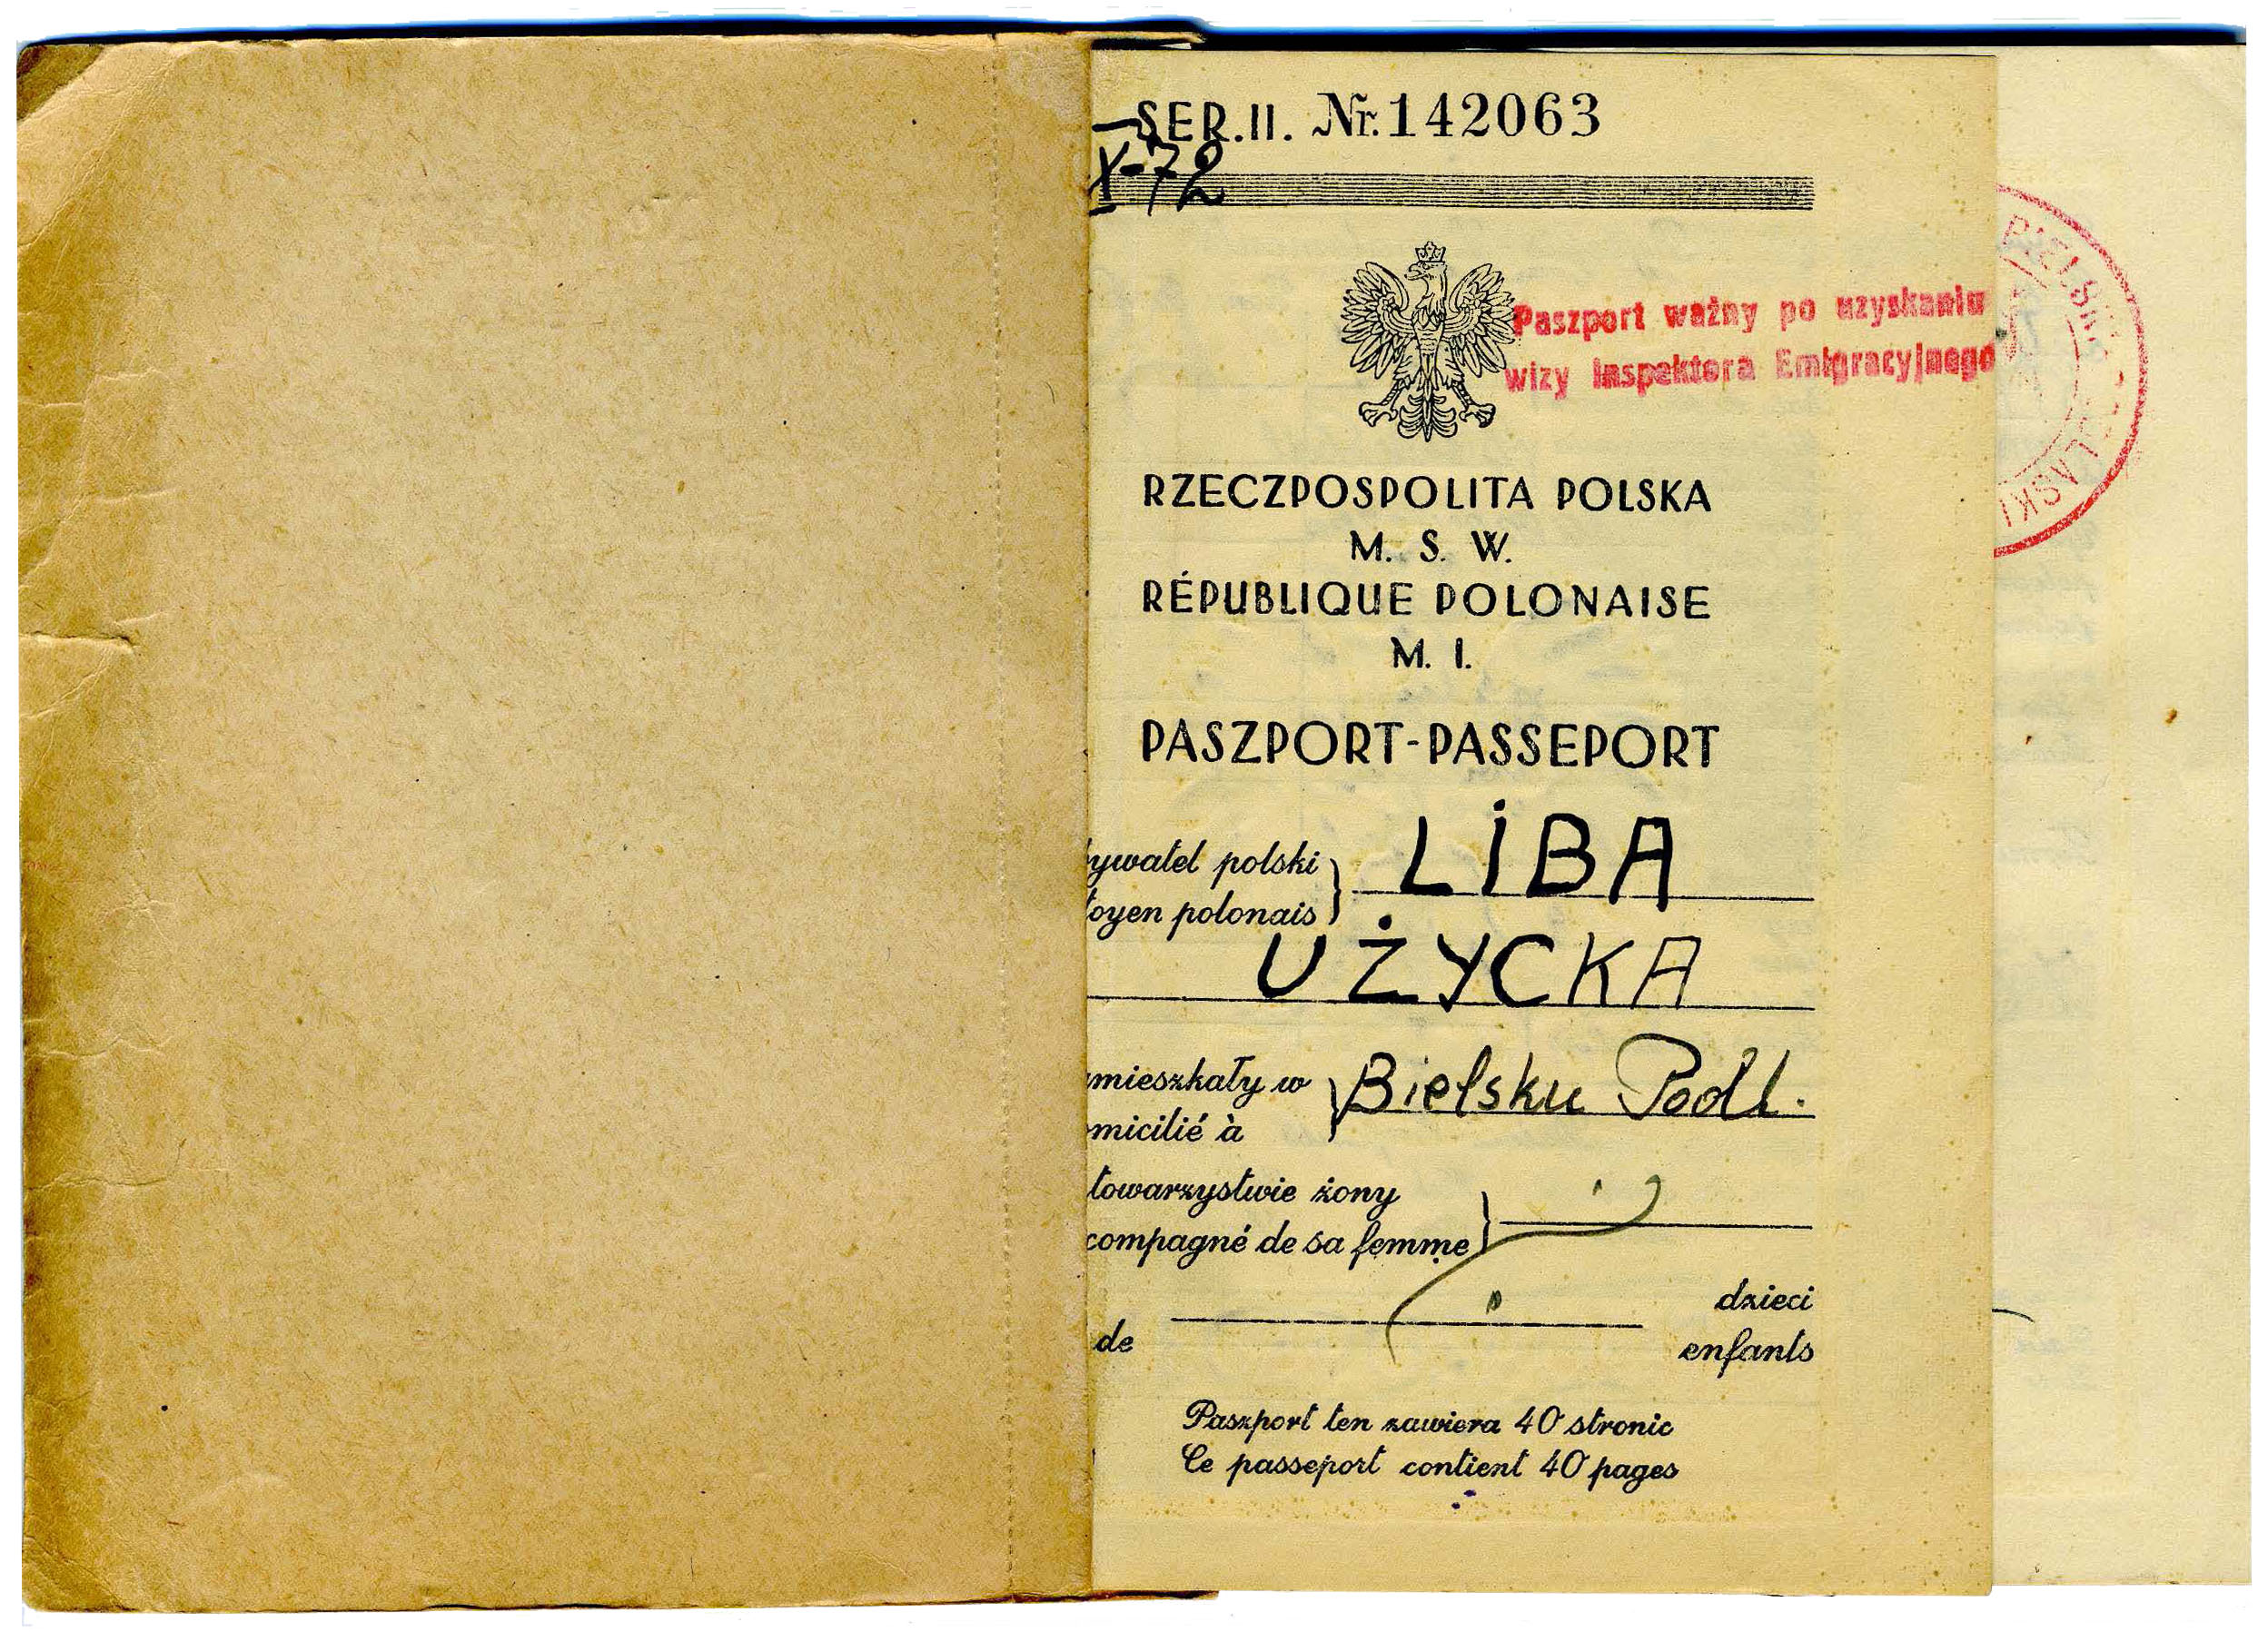 SER.II. Nr.142063
X-72
Paszport ważny po uzyskaniu
wizy Inspektora Emigracyjnego
RZECZPOSPOLITA POLSKA
M. S. W.
RÉPUBLIQUE POLONAISE
M. I.
PASZPORT-PASSEPORT
ywatel polski
toyen polonais
LIBA
UŻYCKA
mieszkały w
omicilié à
Bielsku Podl.
towarzystwie żony
compagné de sa femme
dzieci
de
enfants
Paszport ten zawiera 40 stronic
Ce passeport contient 40 pages